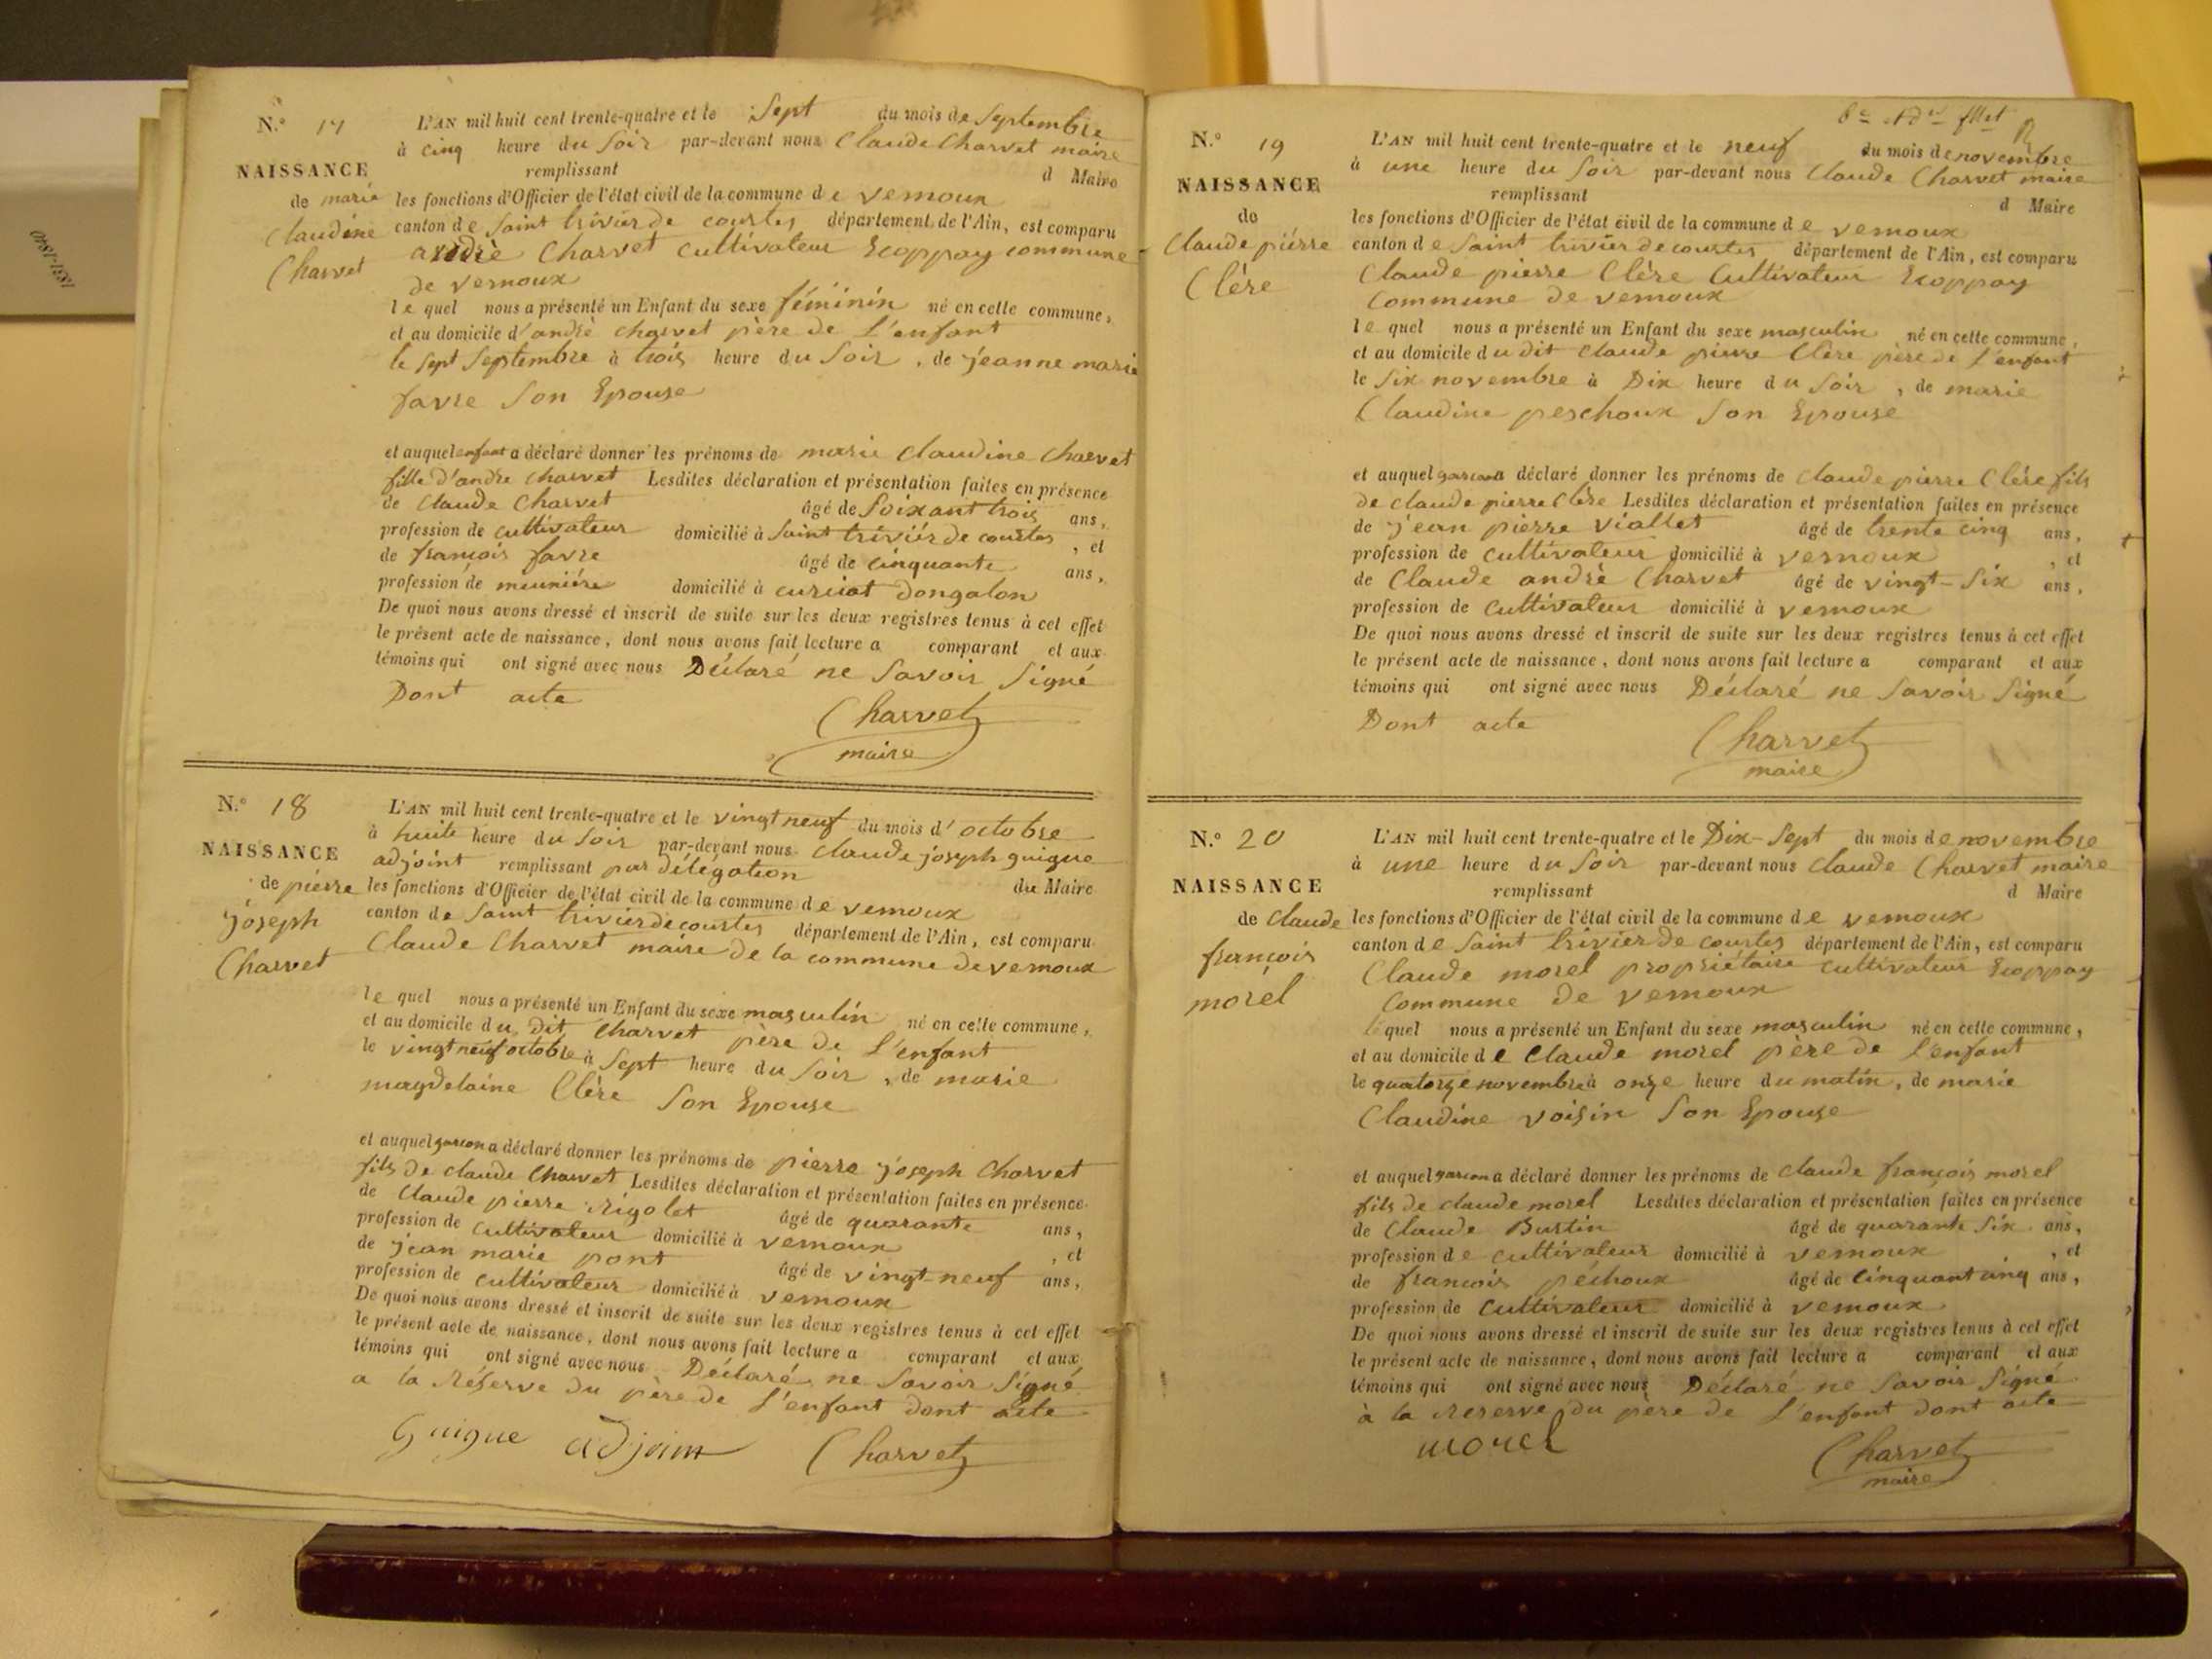 1831-1840
N.° 17
NAISSANCE
de marie
Claudine
Charvet
L'AN mil huit cent trente-quatre et le Sept du mois de Septembre
à cinq heure du Soir par-devant nous Claude Charvet maire
remplissant d Maire
les fonctions d'Officier de l'état civil de la commune de vernoux
canton de Saint triviér de courtes département de l'Ain, est comparu
andrè Charvet cultivateur Ecoppay commune
de vernoux
le quel nous a présenté un Enfant du sexe féminin né en cette commune,
et au domicile d'andrè charvet père de l'enfant
le Sept Septembre à trois heure du Soir, de jeanne marie
favre Son Epouse
et auquel enfant a déclaré donner les prénoms de marie Claudine Charvet
fille d'andre charvet Lesdites déclaration et présentation faites en présence
de Claude Charvet âgé de Soixant trois ans,
profession de cultivateur domicilié à Saint triviér de courtes, et
de françois favre âgé de Cinquante ans,
profession de meuniére domicilié à curciat dongalon
De quoi nous avons dressé et inscrit de suite sur les deux registres tenus à cet effet
le présent acte de naissance, dont nous avons fait lecture a comparant et aux
témoins qui ont signé avec nous Déclaré ne Savoir Signé
Dont acte
Charvet
maire
N.° 18
NAISSANCE
de piérre
joseph
Charvet
L'AN mil huit cent trente-quatre et le vingt neuf du mois d'octobre
à huite heure du Soir par-devant nous Claude joseph guigue
adjoint remplissant par délégation du Maire
les fonctions d'Officier de l'état civil de la commune de vernoux
canton de Saint trivier de courtes département de l'Ain, est comparu
Claude Charvet maire de la commune de vernoux
le quel nous a présenté un Enfant du sexe masculin né en cette commune,
et au domicile du dit Charvet père de l'enfant
le vingt neuf octobre à Sept heure du Soir, de marie
magdelaine Clère Son Epouse
et auquel garcon a déclaré donner les prénoms de pierre joseph Charvet
fils de claude Charvet Lesdites déclaration et présentation faites en présence
de Claude pierre rigolet âgé de quarante ans,
profession de cultivateur domicilié à vernoux, et
de jean marie pont âgé de vingt-neuf ans,
profession de cultivateur domicilié à vernoux
De quoi nous avons dressé et inscrit de suite sur les deux registres tenus à cet effet
le présent acte de naissance, dont nous avons fait lecture a comparant et aux
témoins qui ont signé avec nous Déclaré ne Savoir Signé
a la réserve du père de l'enfant dont acte
Guigue adjoint Charvet
N.° 19
NAISSANCE
de
Claude piérre
Clère
L'AN mil huit cent trente-quatre et le neuf du mois de novembre
à une heure du Soir par-devant nous Claude Charvet maire
remplissant d Maire
les fonctions d'Officier de l'état civil de la commune de vernoux
canton de Saint trivier de courtes département de l'Ain, est comparu
Claude pierre Clère Cultivateur Ecoppay
Commune de vernoux
le quel nous a présenté un Enfant du sexe masculin né en cette commune,
et au domicile du dit Claude pierre Clère père de l'enfant
le Six novembre à Dix heure du Soir, de marie
Claudine peschoux Son Epouse
et auquel garcon a déclaré donner les prénoms de Claude pierre Clère fils
de claude pierre Clère Lesdites déclaration et présentation faites en présence
de jean pierre viallet âgé de trente cinq ans,
profession de cultivateur domicilié à vernoux, et
de Claude andrè Charvet âgé de vingt-Six ans,
profession de cultivateur domicilié à vernoux
De quoi nous avons dressé et inscrit de suite sur les deux registres tenus à cet effet
le présent acte de naissance, dont nous avons fait lecture a comparant et aux
témoins qui ont signé avec nous Déclaré ne Savoir Signé
Dont acte
Charvet
maire
N.° 20
NAISSANCE
de Claude
françois
morel
L'AN mil huit cent trente-quatre et le Dix-Sept du mois de novembre
à une heure du Soir par-devant nous Claude Charvet maire
remplissant d Maire
les fonctions d'Officier de l'état civil de la commune de vernoux
canton de Saint trivier de courtes département de l'Ain, est comparu
Claude morel propriétaire cultivateur Ecoppay
Commune de vernoux
le quel nous a présenté un Enfant du sexe masculin né en cette commune,
et au domicile de Claude morel père de l'enfant
le quatorze novembre à onze heure du matin, de marie
Claudine voisin Son Epouse
et auquel garcon a déclaré donner les prénoms de Claude françois morel
fils de claude morel Lesdites déclaration et présentation faites en présence
de Claude Burtin âgé de quarante Six ans,
profession de cultivateur domicilié à vernoux, et
de francois péchoux âgé de Cinquant cinq ans,
profession de cultivateur domicilié à vernoux
De quoi nous avons dressé et inscrit de suite sur les deux registres tenus à cet effet
le présent acte de naissance, dont nous avons fait lecture a comparant et aux
témoins qui ont signé avec nous Déclaré ne Savoir Signé
à la reserve du père de l'enfant dont acte
morel Charvet
maire